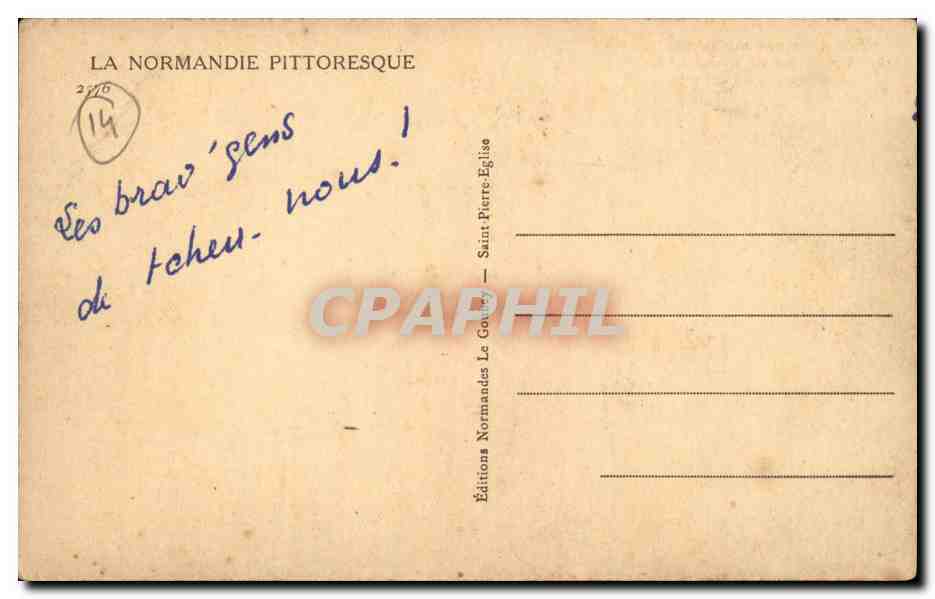 LA NORMANDIE PITTORESQUE
14
Les brav'gens
de tcheu-nous.!
Éditions Normandes Le Goubey — Saint-Pierre-Eglise
CPAPHIL